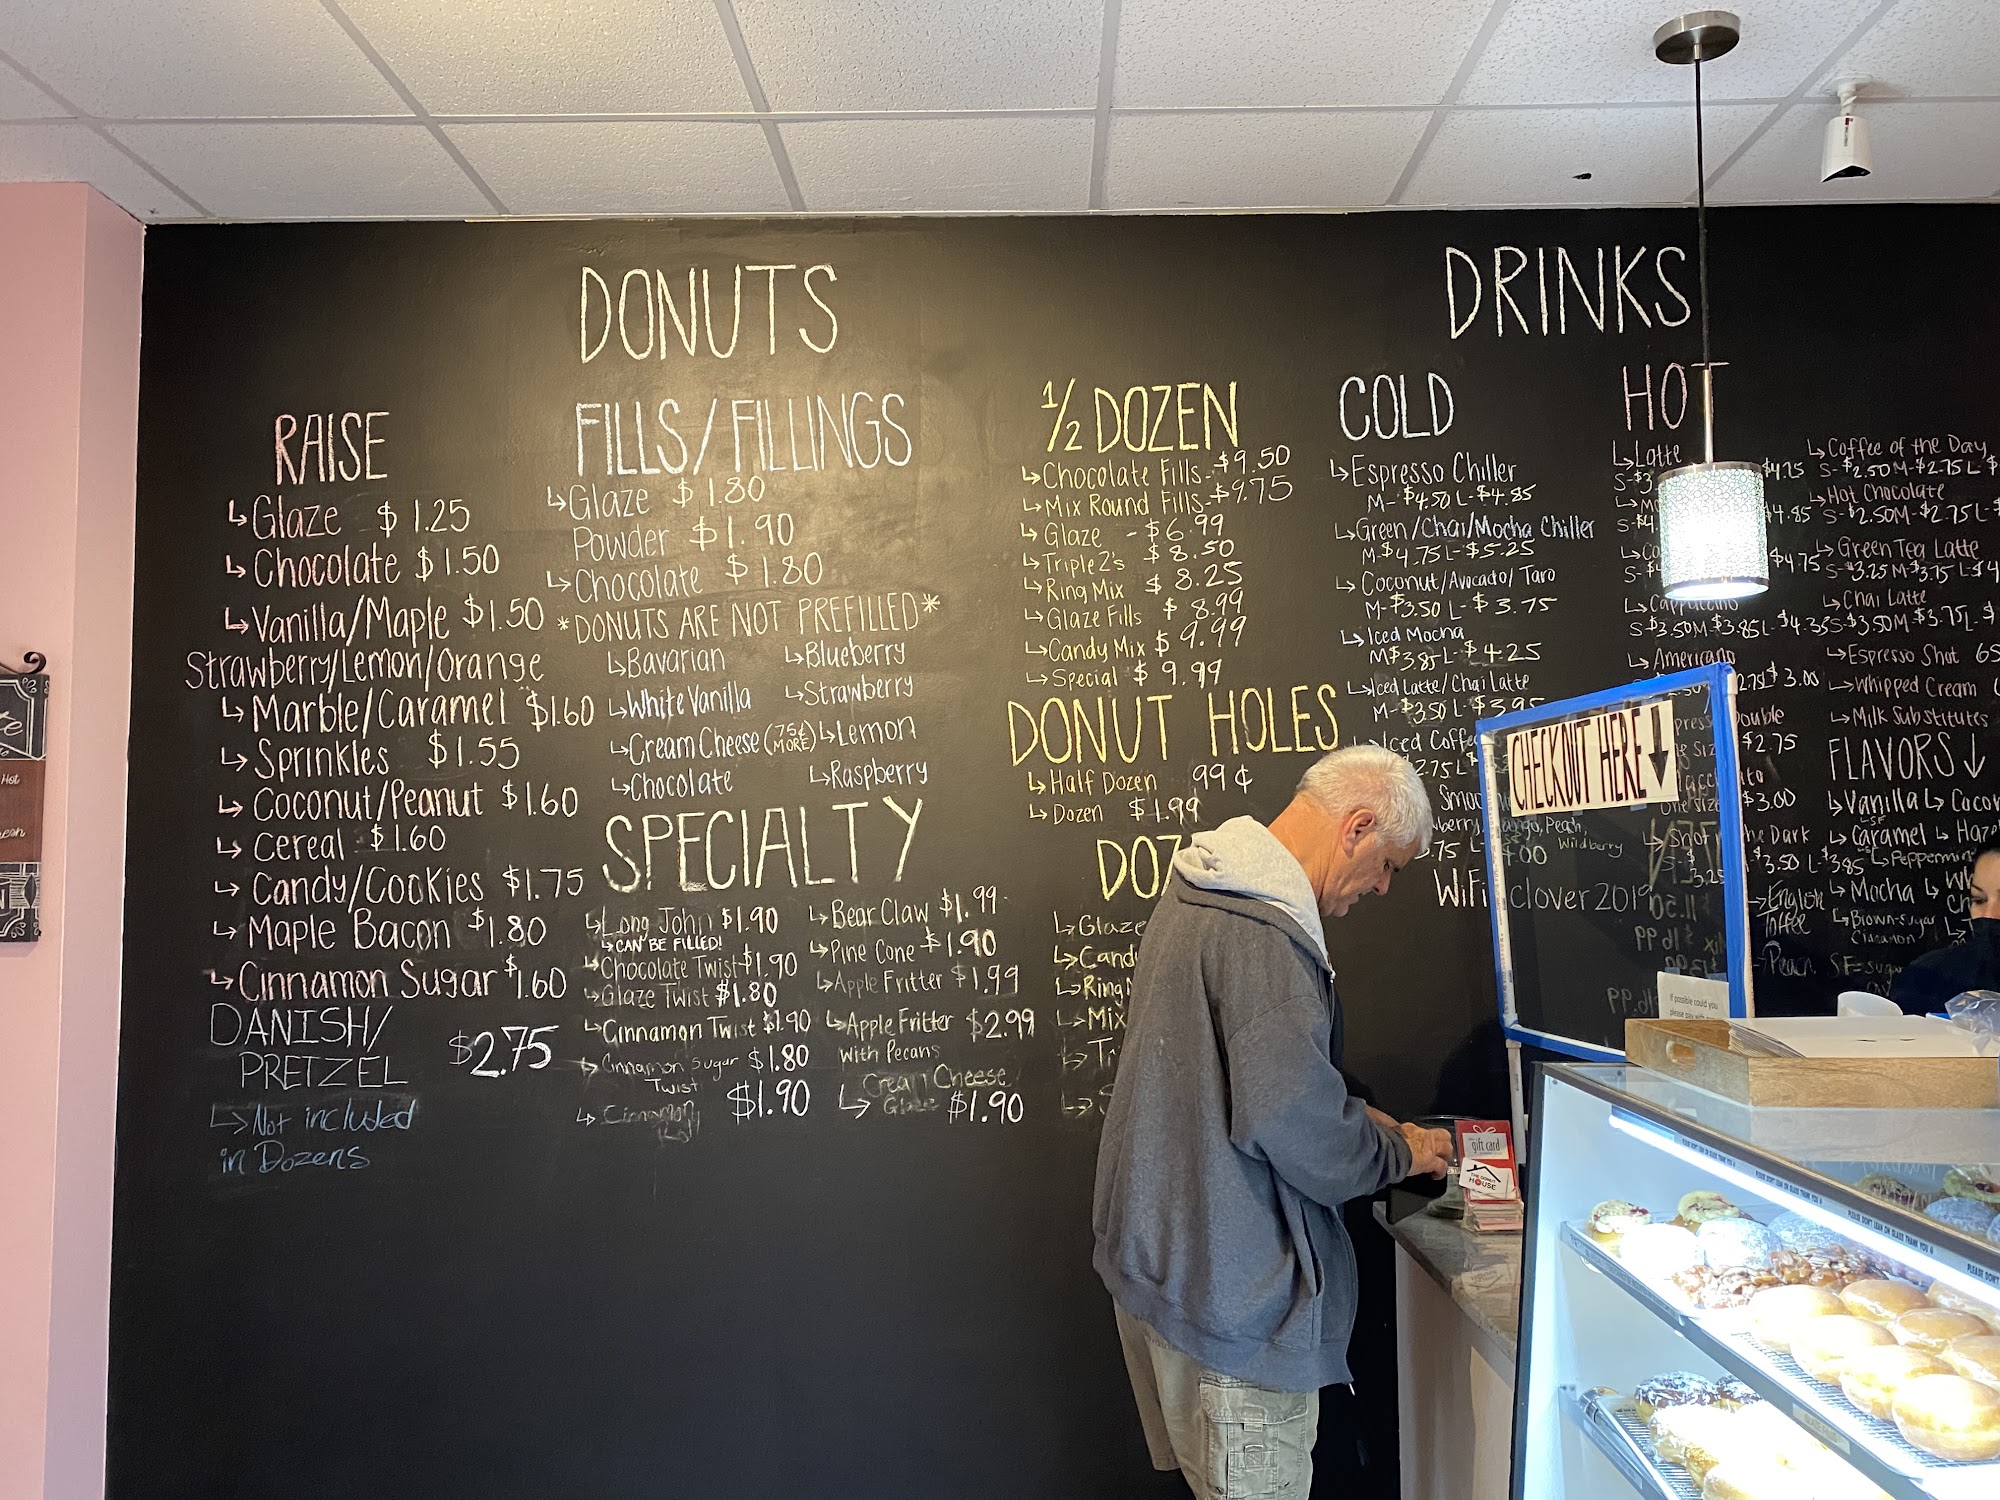 DONUTS
RAISE
↳Glaze $1.25
↳Chocolate $1.50
↳Vanilla/Maple $1.50
Strawberry/Lemon/Orange
↳Marble/Caramel $1.60
↳Sprinkles $1.55
↳Coconut/Peanut $1.60
↳Cereal $1.60
↳Candy/Cookies $1.75
↳Maple Bacon $1.80
↳Cinnamon Sugar $1.60
DANISH/
PRETZEL $2.75
↳Not included
in Dozens
FILLS/FILLINGS
↳Glaze $1.80
Powder $1.90
↳Chocolate $1.80
*DONUTS ARE NOT PREFILLED*
↳Bavarian ↳Blueberry
↳White Vanilla ↳Strawberry
↳Cream Cheese (75¢ MORE) ↳Lemon
↳Chocolate ↳Raspberry
SPECIALTY
↳Long John $1.90
↳CAN BE FILLED!
↳Chocolate Twist $1.90
↳Glaze Twist $1.80
↳Cinnamon Twist $1.90
↳Cinnamon Sugar $1.80
Twist
↳Cinnamon $1.90
↳Bear Claw $1.99
↳Pine Cone $1.90
↳Apple Fritter $1.99
↳Apple Fritter $2.99
with Pecans
↳Cream Cheese
Glaze $1.90
1/2 DOZEN
↳Chocolate Fills-$9.50
↳Mix Round Fills-$9.75
↳Glaze -$6.99
↳Triple 2's $8.50
↳Ring Mix $8.25
↳Glaze Fills $8.99
↳Candy Mix $9.99
↳Special $9.99
DONUT HOLES
↳Half Dozen 99¢
↳Dozen $1.99
DOZ
↳Glaze
↳Cand
↳Ring
↳Mix
DRINKS
COLD
↳Espresso Chiller
M-$4.50 L-$4.85
↳Green/Chai/Mocha Chiller
M-$4.75 L-$5.25
↳Coconut/Avocado/Taro
M-$3.50 L-$3.75
↳Iced Mocha
M$3.85 L-$4.25
↳Iced Latte/Chai Latte
M-$3.50 L-$3.95
↳Iced Coffe
Peach,
Wildberry
WiFi Clover2019
HOT
↳Latte
$4.85
$4.75
↳Cappuccino
S$3.50 M-$3.85 L-$4.35
↳Americano
$3.00
Double
$2.75
$3.00
↳Shot in the Dark
$3.50 L$3.85
↳English
Toffee
↳Peach
↳Coffee of the Day
S-$2.50 M-$2.75 L-$
↳Hot Chocolate
S-$2.50 M-$2.75 L-$
↳Green Tea Latte
S-$3.25 M-$3.75 L-$4
↳Chai Latte
S-$3.50 M-$3.75 L-$
↳Espresso Shot 65
↳Whipped Cream
↳Milk Substitutes
FLAVORS↓
↳Vanilla ↳Cocon
↳SF
↳Caramel ↳Haze
↳Peppermin
↳Mocha ↳Wh
↳Brown-Sugar
Cinnamon
SF=sugar
CHECKOUT HERE↓
If possible could you
please pay with
gift card
THE DONUT
HOUSE
PLEASE DON'T LEAN ON GLASS THANK YOU
Hot